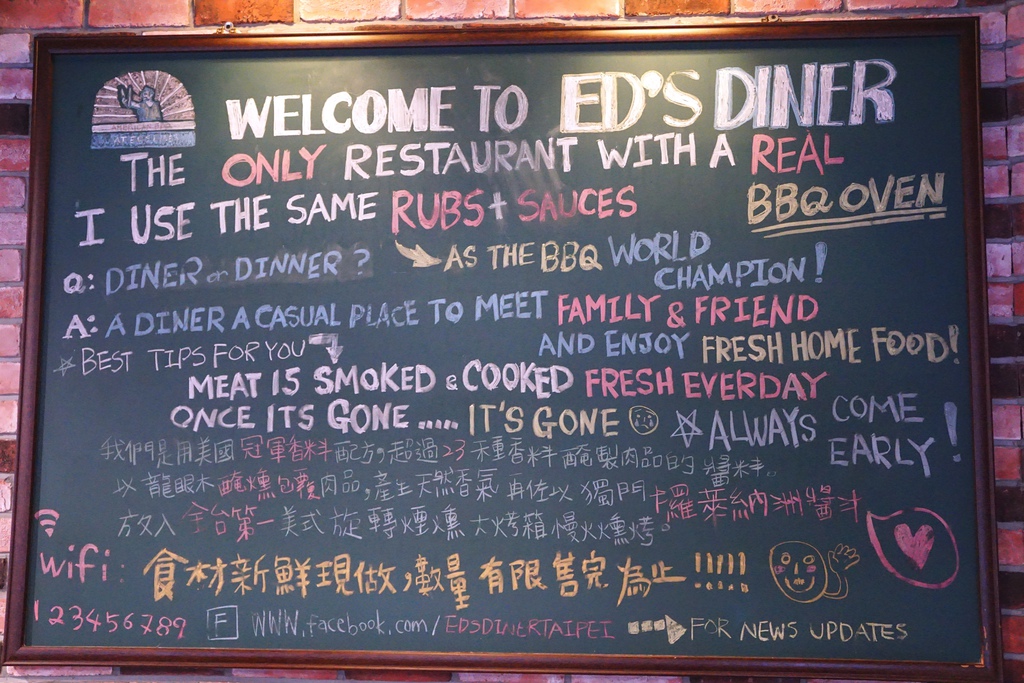 WELCOME TO ED'S DINER
THE ONLY RESTAURANT WITH A REAL
BBQ OVEN
I USE THE SAME RUBS + SAUCES
AS THE BBQ WORLD
CHAMPION!
Q: DINER or DINNER ?
A: A DINER A CASUAL PLACE TO MEET FAMILY & FRIEND
AND ENJOY FRESH HOME FOOD!
☆BEST TIPS FOR YOU
MEAT IS SMOKED & COOKED FRESH EVERDAY
ONCE ITS GONE ..... IT'S GONE
☆ALWAYS COME
EARLY!
我們是用美國冠軍香料配方,超過23種香料醃製肉品的醬料。
以龍眼木醃燻包覆肉品,產生天然香氣再佐以獨門卡羅萊納洲醬汁
放入全台第一美式旋轉煙燻大烤箱慢火燻烤。
食材新鮮現做,數量有限售完為止!!!!!
wifi:
123456789
F www.facebook.com/EDSDINERTAIPEI FOR NEWS UPDATES